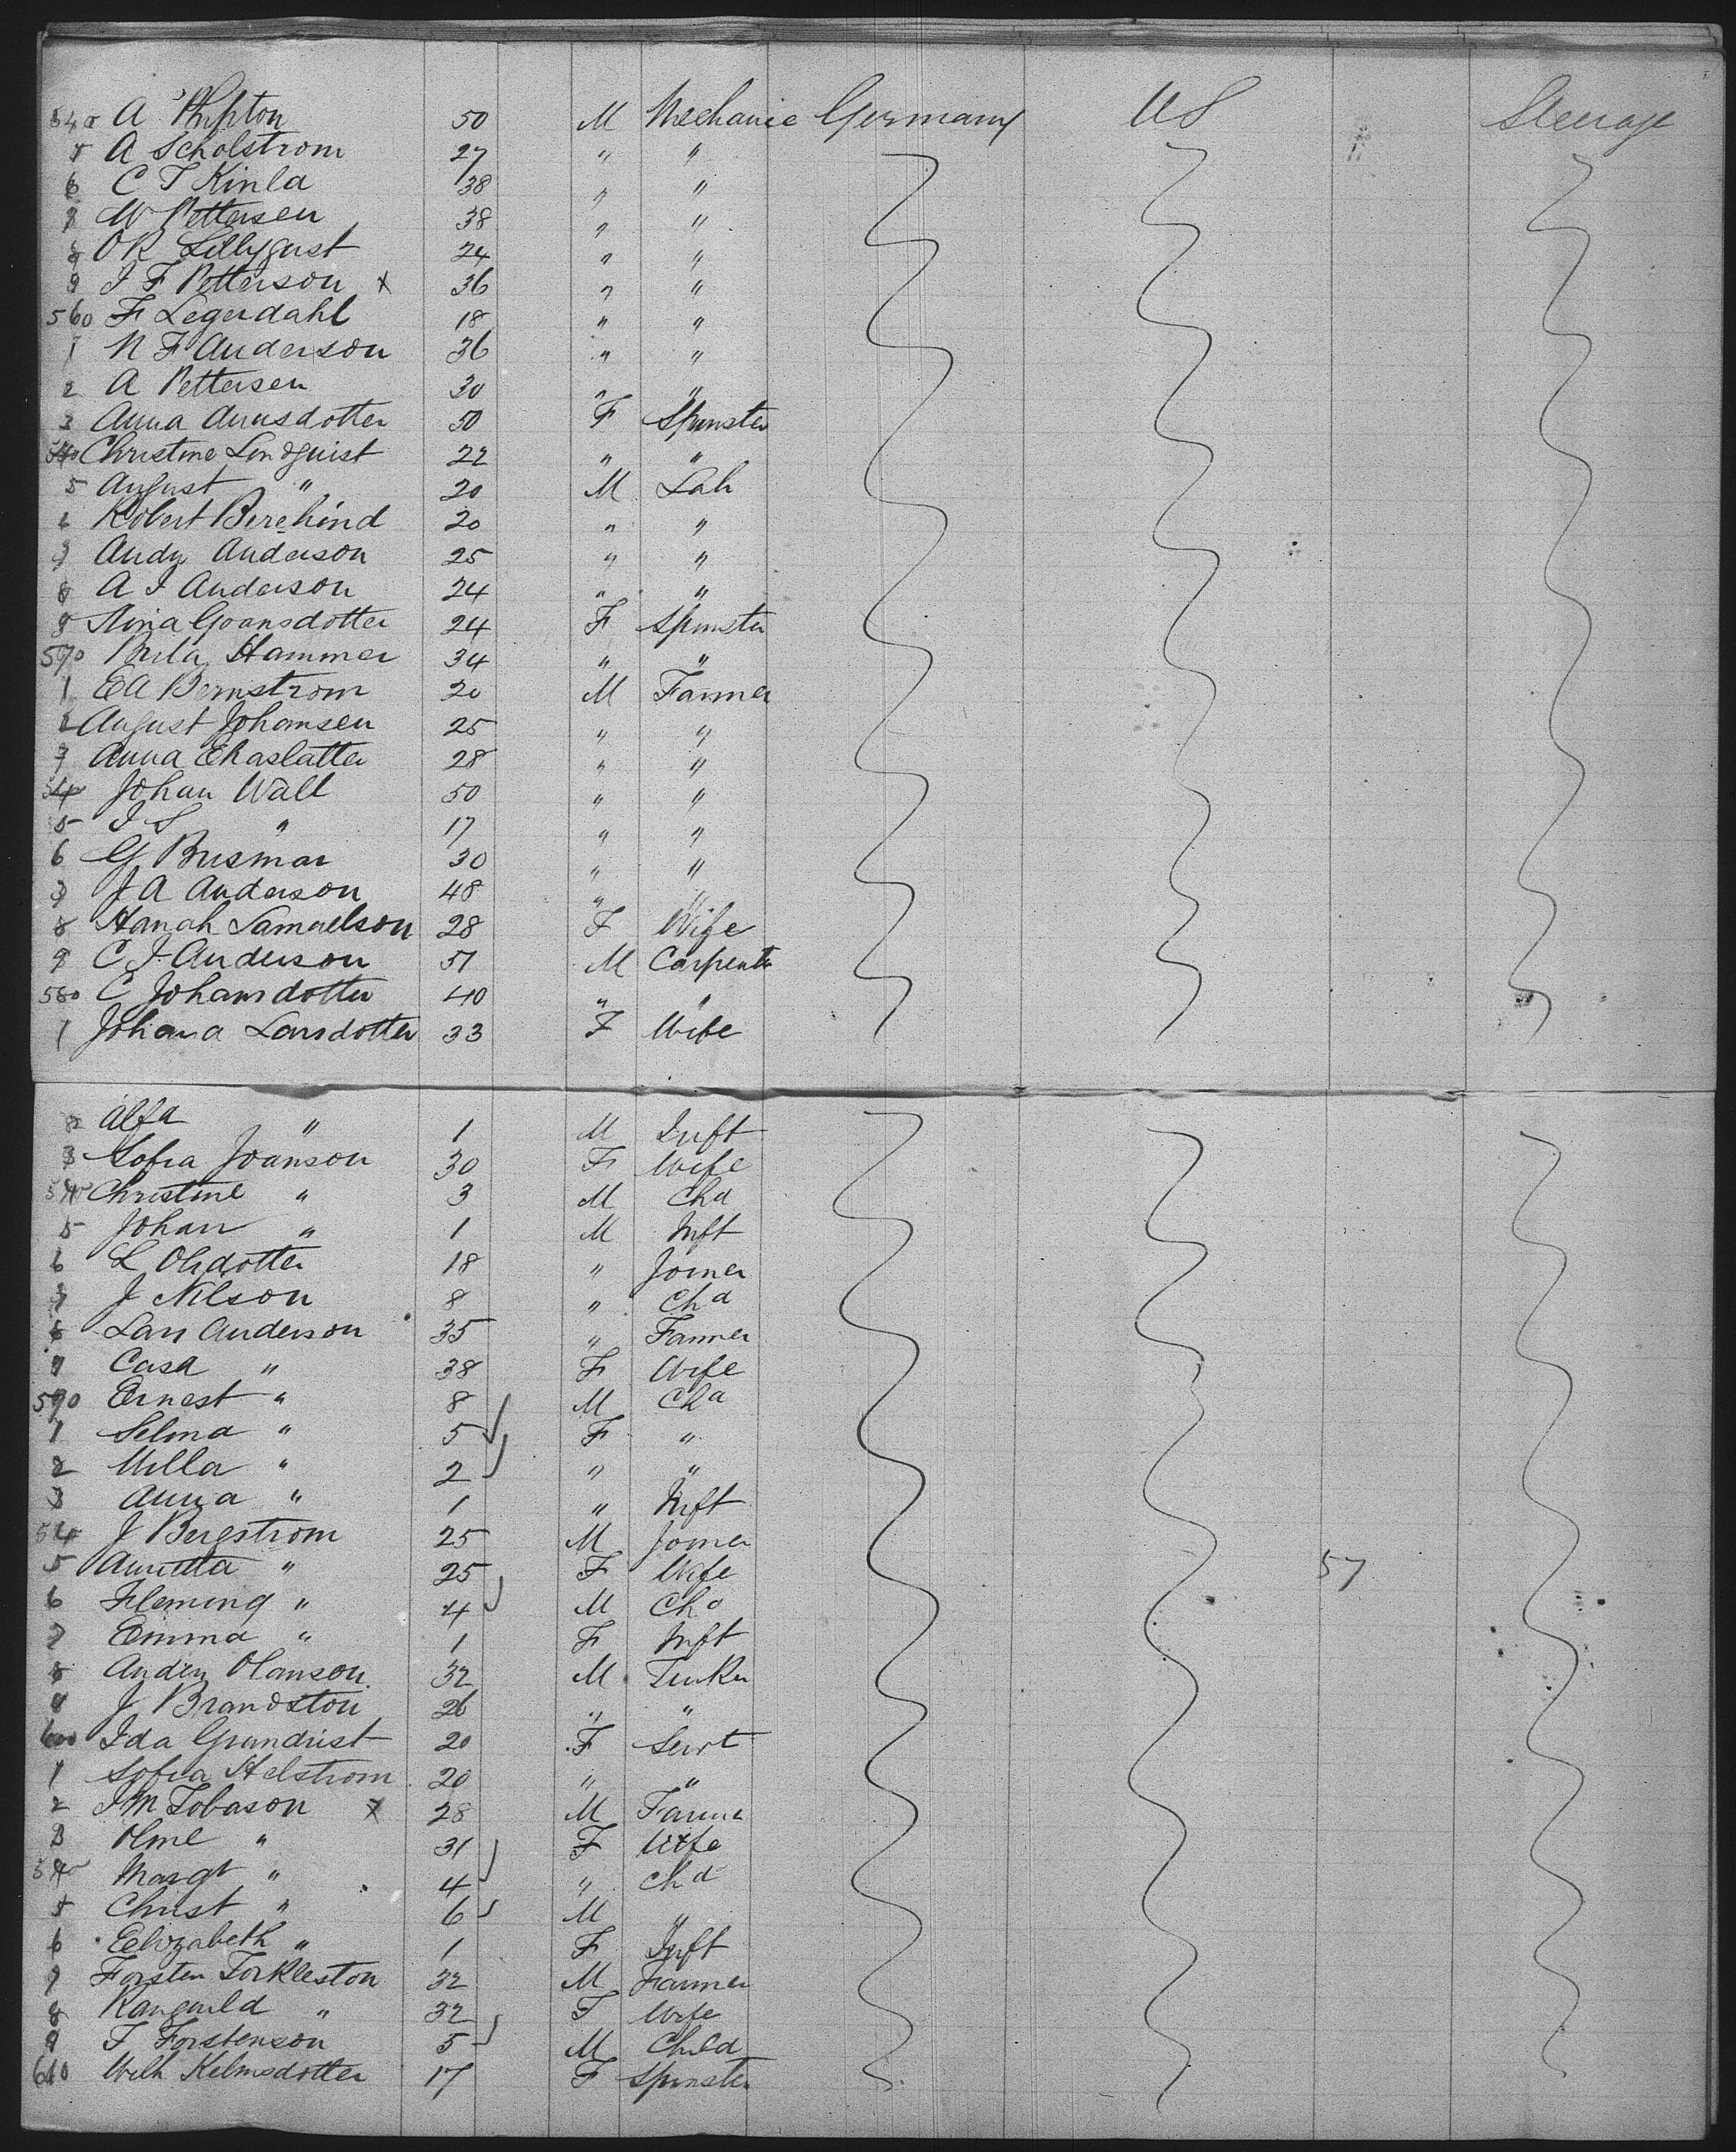 A 50 M Mechanic Germany US Steerage
A Scholstrom 27 " "
6 C T Kinla 38 " "
W Pettersen 38 " "
O R Lillyqust 24 " "
9 J F Petterson x 36 " "
560 F Legerdahl 18 " "
1 N F Anderson 36 " "
2 A Pettersen 30 " "
3 Anna Annsdotter 50 F Spinster
Christine Lindquist 22 " "
5 August " 20 M Lab
6 Robert Berehind 20 " "
Andy Anderson 25 " "
8 A J Anderson 24 " "
9 Stina Goansdotter 24 F Spinster
570 Hammer 34 " "
1 E A Bernstrom 20 M Farmer
2 August Johansen 25 " "
3 Anna 28 " "
Johan Wall 50 " "
5 J S " 17 " "
6 G Busmar 30 " "
J A Anderson 48 " "
8 Hanah Samuelson 28 F Wife
9 C J Anderson 51 M Carpenter
580 C Johansdotter 40 " "
1 Johana Larsdotter 33 F Wife
2 Alfa " 1 M Inft
3 Sofia Joanson 30 F Wife
Christine " 3 M Chd
5 Johan " 1 M Inft
6 L Olsdotter 18 " Joiner
J Nilson 8 " Chd
Lars Anderson 35 " Farmer
Casa " 38 F Wife
590 Ernest " 8 M Chd
1 Selma " 5 F "
2 Milla " 2 " "
3 Anna " 1 " Inft
J Bergstrom 25 M Joiner
5 " 25 F Wife 57
6 Fleming " 4 M Chd
7 Emma " 1 F Inft
8 Olanson 32 M
J Brandston 26 " "
600 Ida Grundrist 20 F Servt
1 Sofia Helstrom 20 " "
2 J M Tobason x 28 M Farmer
3 Olme " 31 F Wife
Margt " 4 " Chd
5 Christ " 6 M "
6 Elizabeth " 1 F Inft
7 Torsten Torkleston 32 M Farmer
8 " 32 F Wife
9 T Torstenson 5 M Child
610 Wilh Kelmsdotter 17 F Spinster